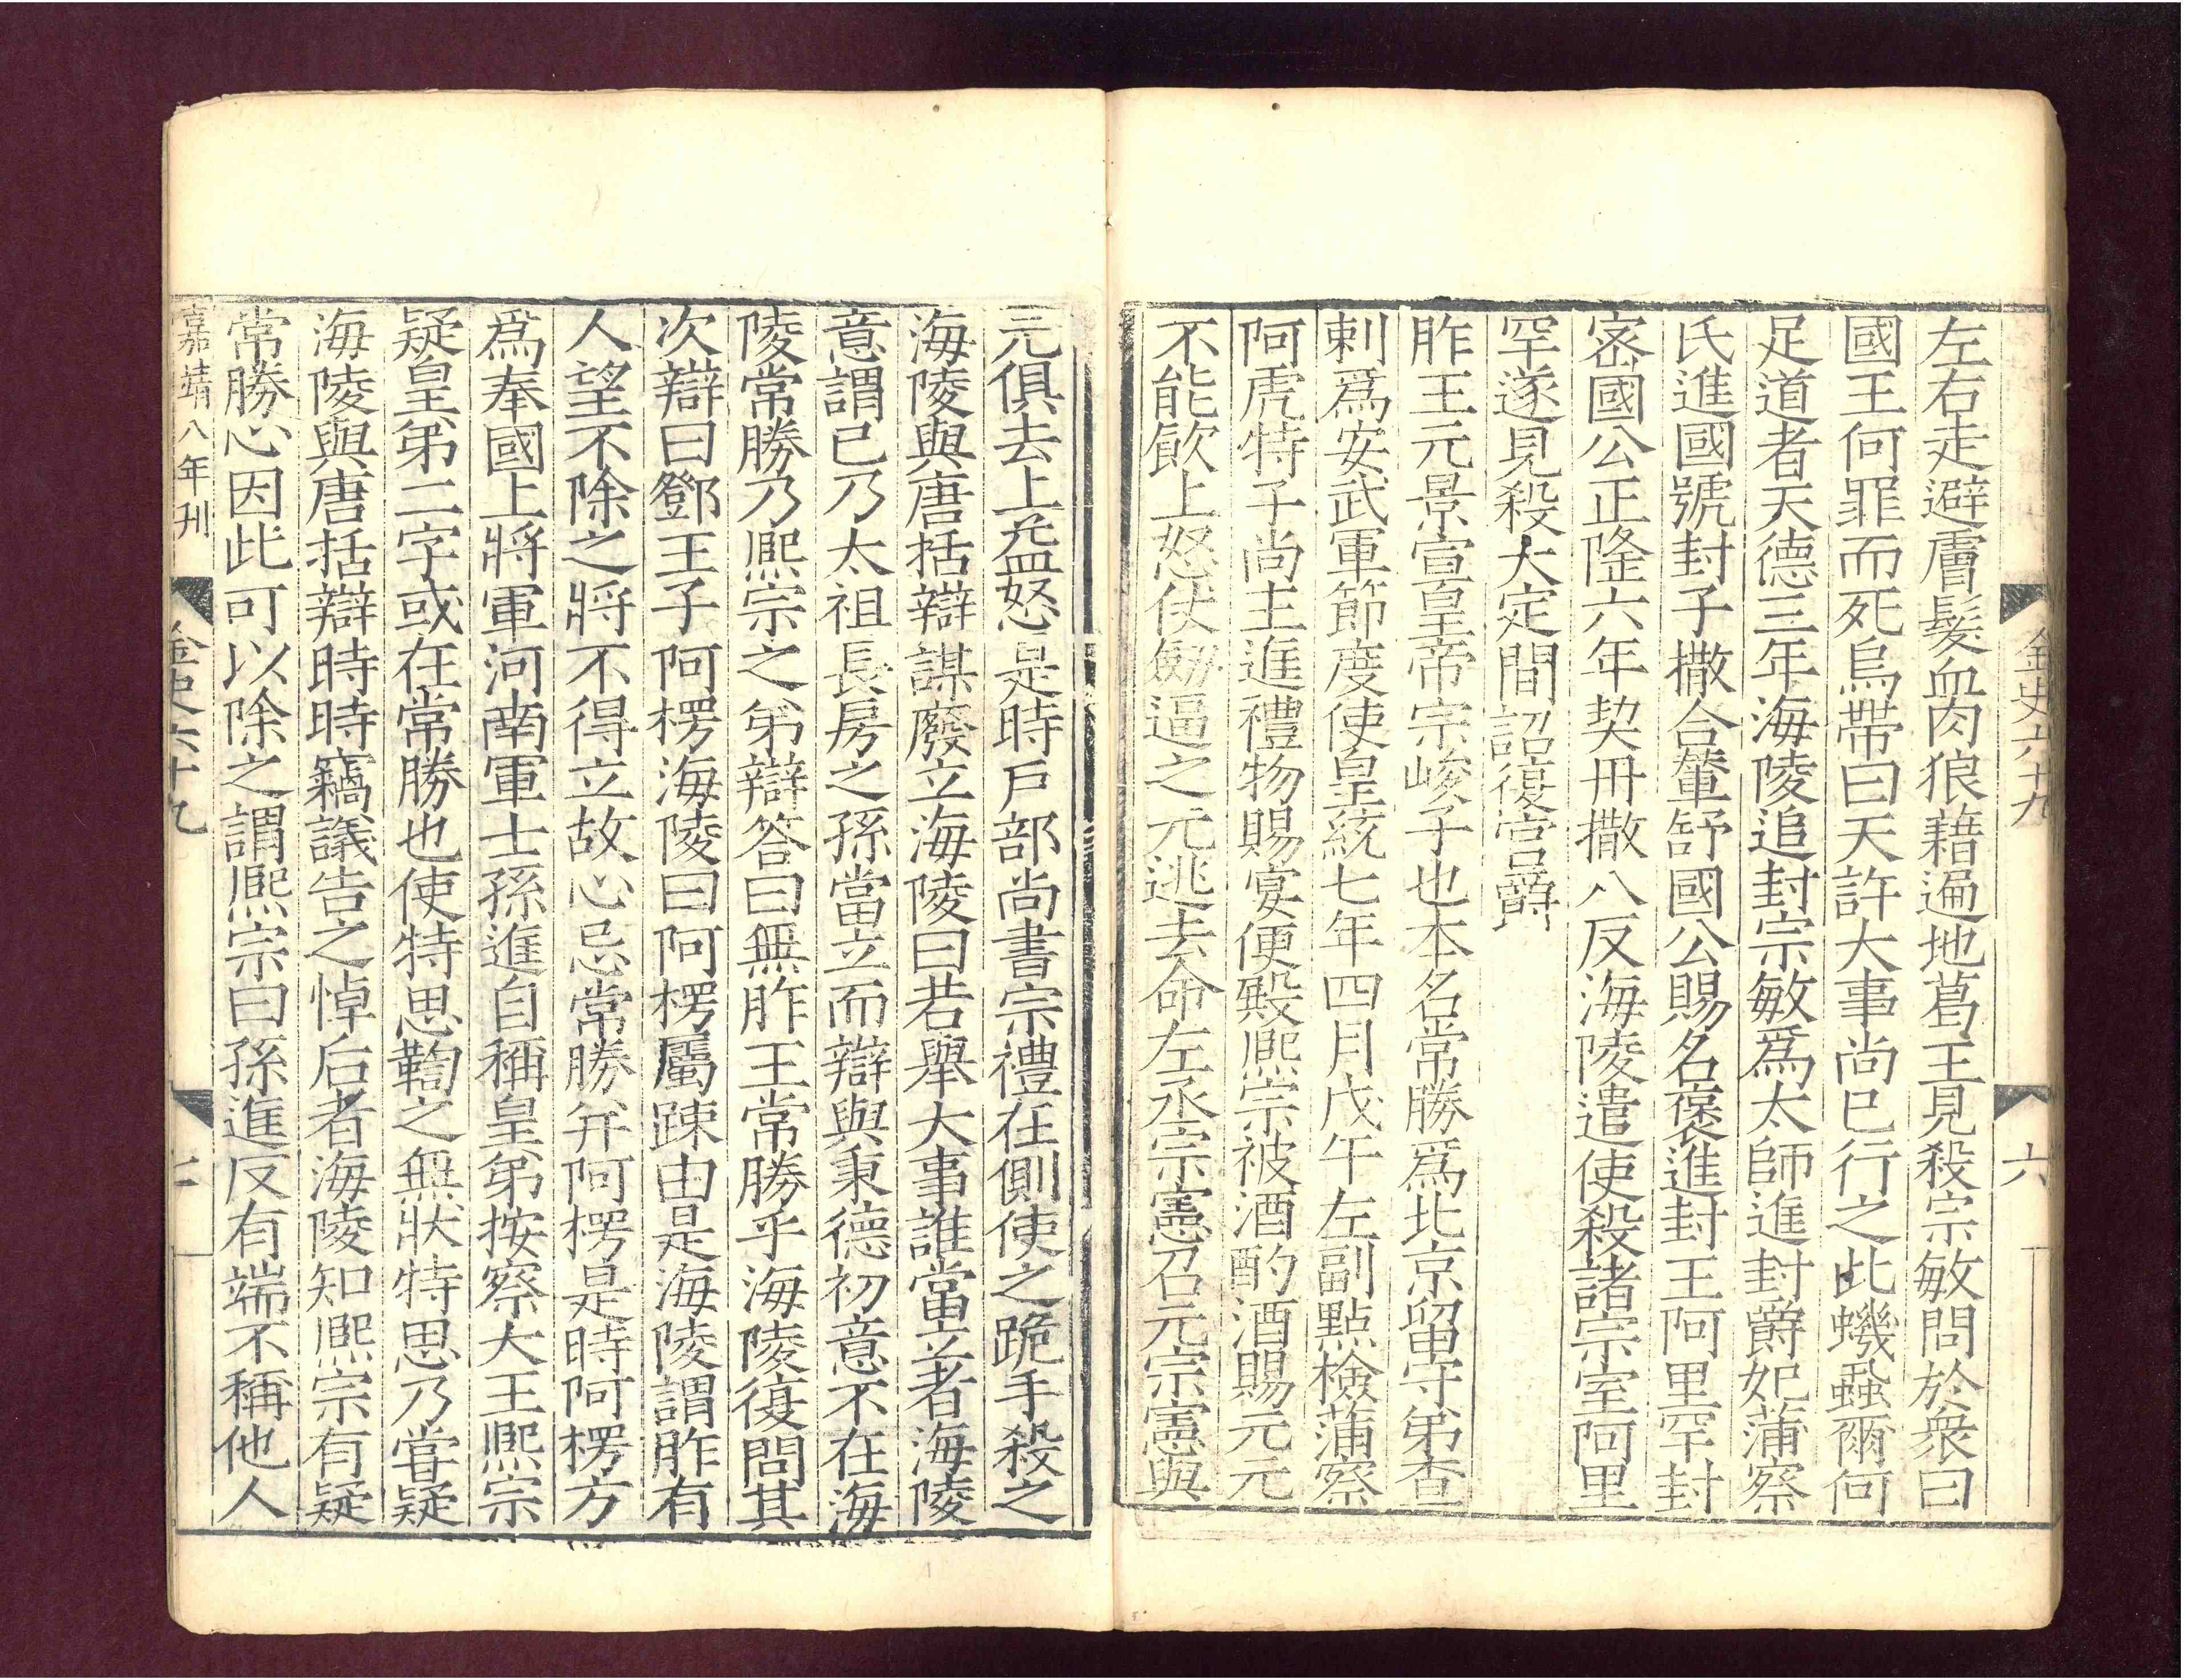 金史六十九
六
左右走避膚髮血肉狼藉遍地葛王見殺宗敏問於衆曰
國王何罪而死烏帶曰天許大事尚已行之此蟣蝨爾何
足道者天德三年海陵追封宗敏爲太師進封爵妃蒲察
氏進國號封子撒合輦舒國公賜名褒進封王阿里罕封
宻國公正隆六年契丹撒八反海陵遣使殺諸宗室阿里
罕遂見殺大定間詔復官爵
胙王元景宣皇帝宗峻子也本名常勝爲北京留守弟查
剌爲安武軍節度使皇統七年四月戊午左副點檢蒲察
阿虎特子尚主進禮物賜宴便殿熈宗被酒酌酒賜元元
不能飲上怒仗劒逼之元逃去命左丞宗憲召元宗憲與
元俱去上益怒是時戶部尚書宗禮在側使之跪手殺之
海陵與唐括辯謀廢立海陵曰若舉大事誰當立者海陵
意謂已乃太祖長房之孫當立而辯與秉德初意不在海
陵常勝乃熈宗之弟辯答曰無胙王常勝乎海陵復問其
次辯曰鄧王子阿楞海陵曰阿楞屬踈由是海陵謂胙有
人望不除之將不得立故心忌常勝并阿楞是時阿楞方
爲奉國上將軍河南軍士孫進自稱皇弟按察大王熈宗
疑皇弟二字或在常勝也使特思鞫之無狀特思乃嘗疑
海陵與唐括辯時時竊議告之悼后者海陵知熈宗有疑
常勝心因此可以除之謂熈宗曰孫進反有端不稱他人
嘉靖八年刊
金史六十九
七